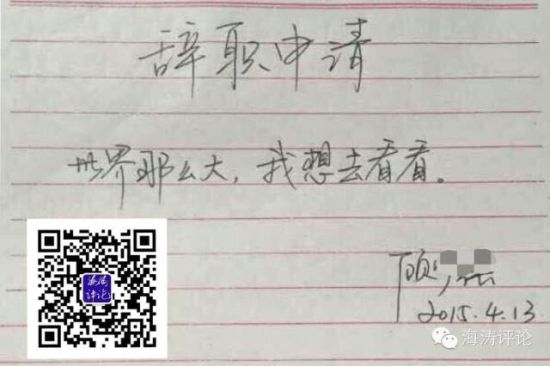 辞职申请
世界那么大，我想去看看。
顾
2015.4.13
海涛评论
海涛评论